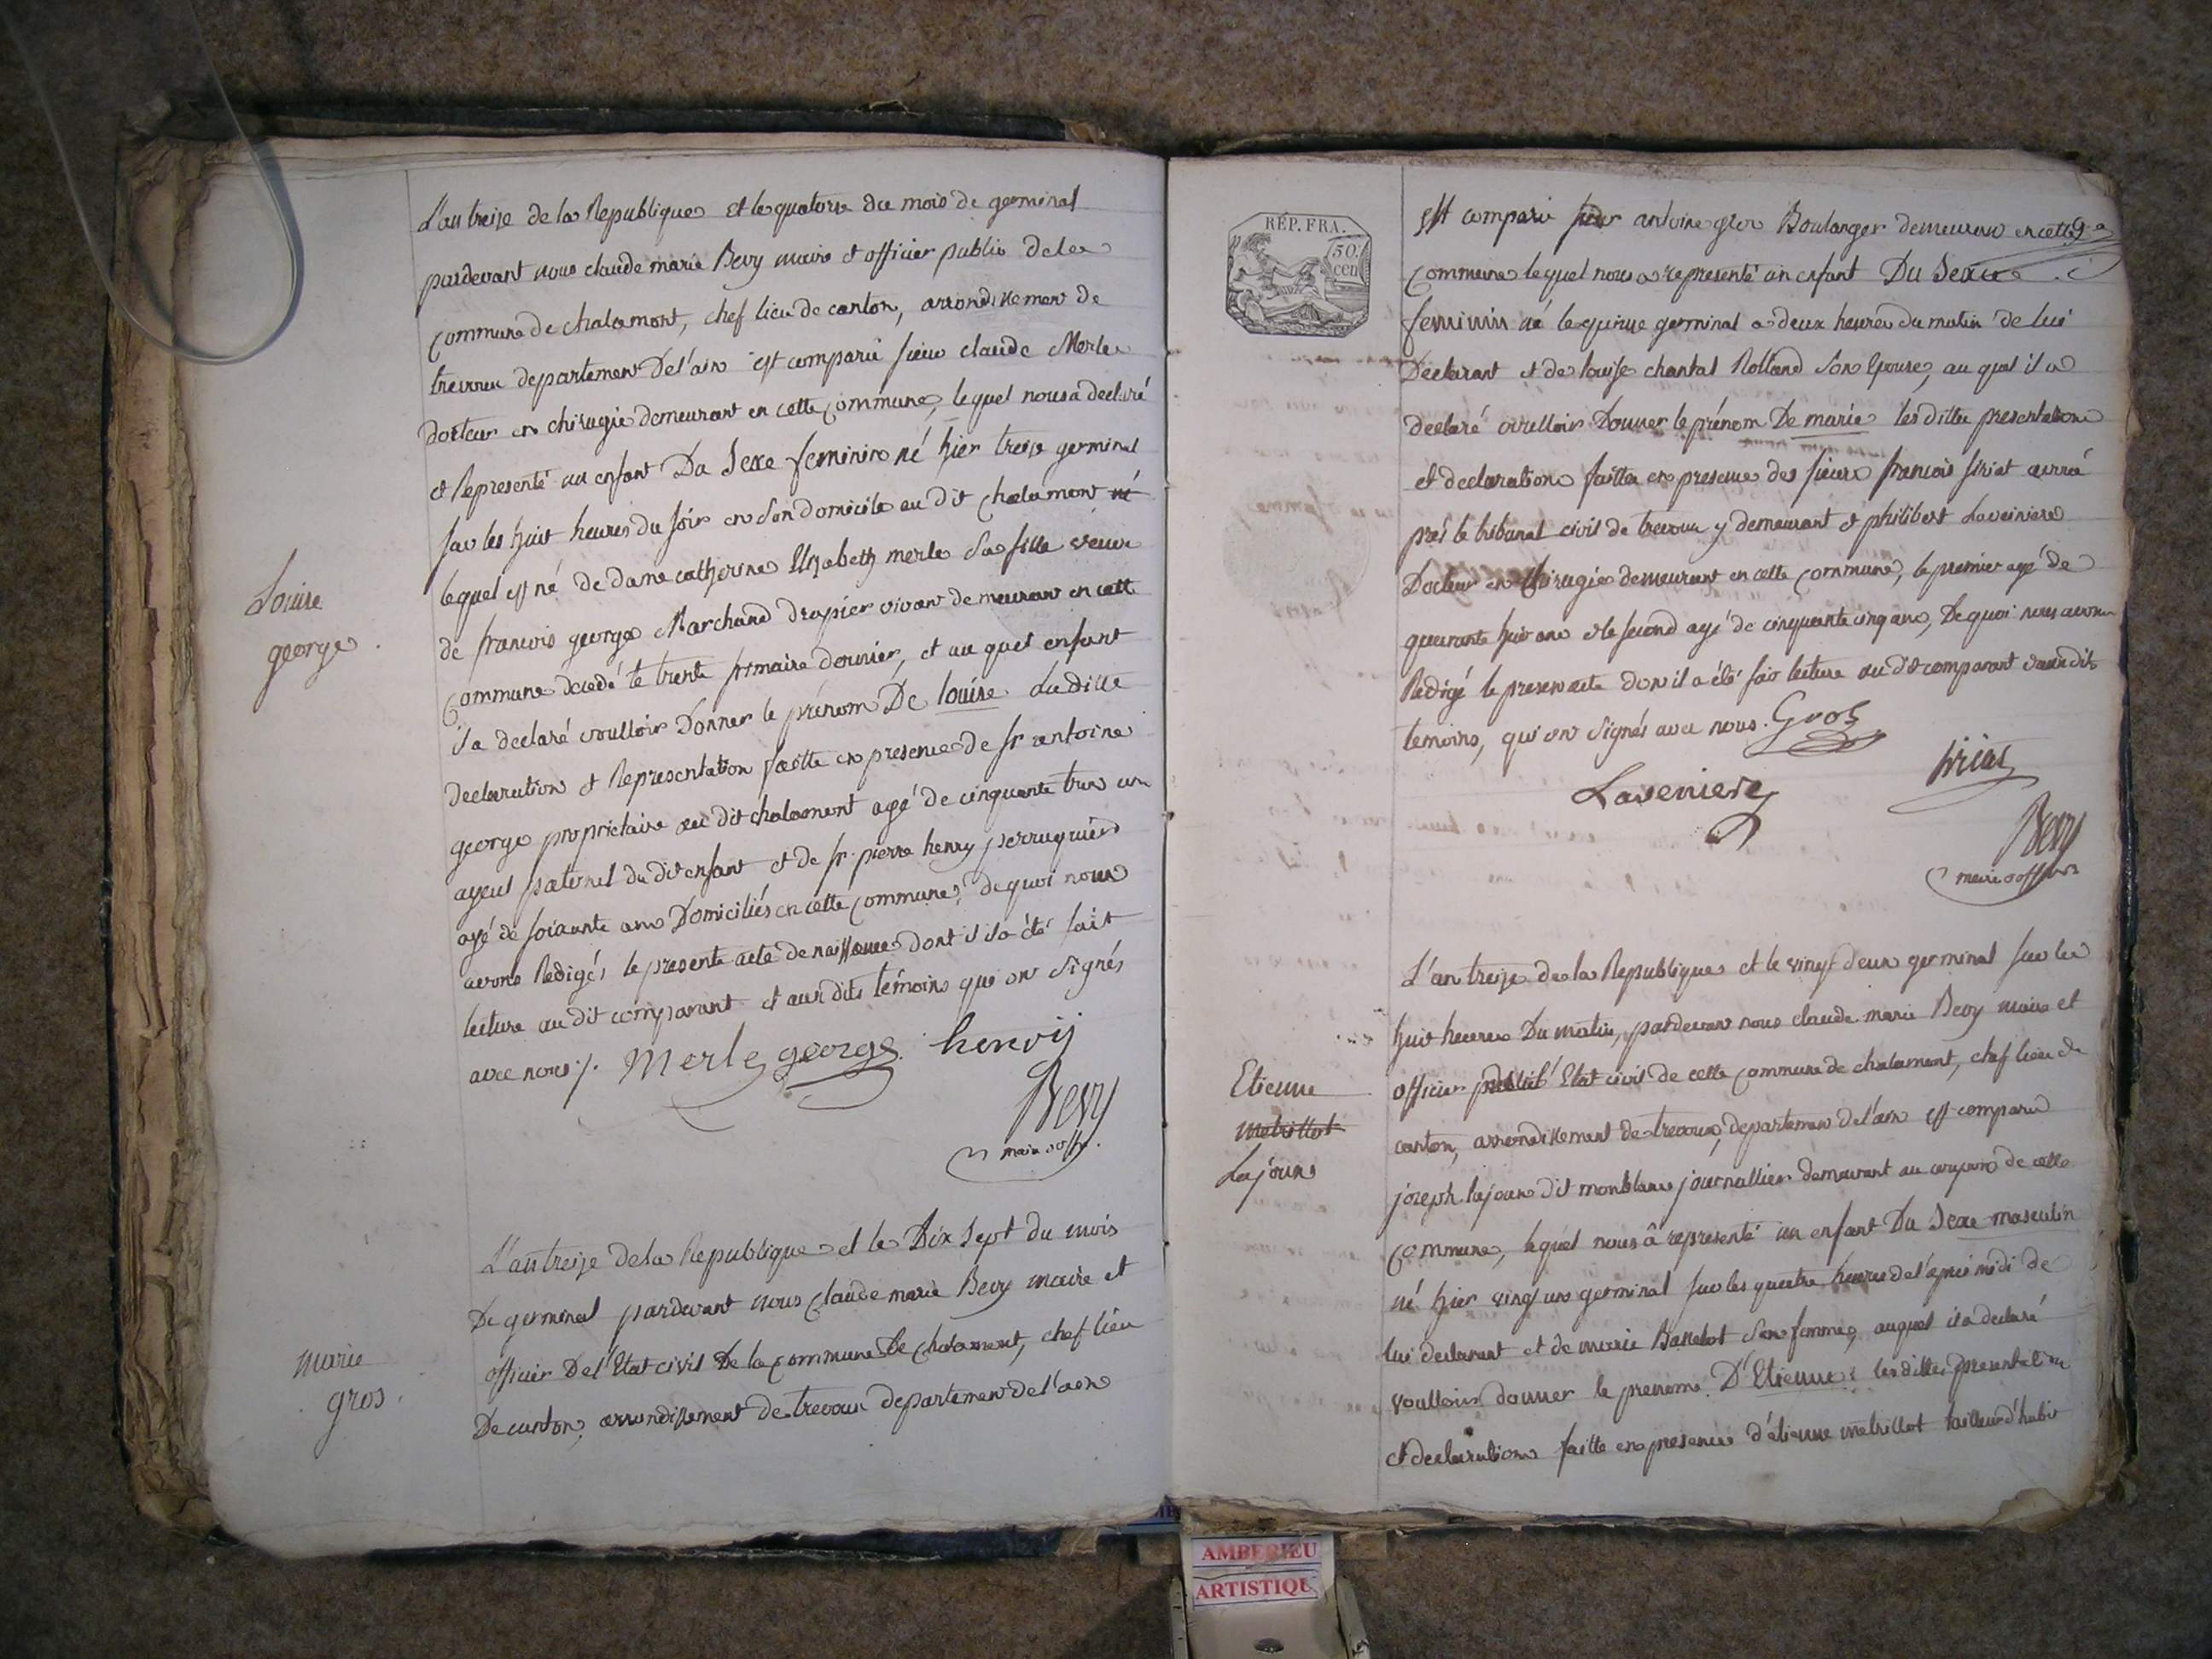 L'an treize de la Republique et le quatorze du mois de germinal
pardevant nous claude marie Bevy maire et officier public de la
commune de chalamont, chef lieu de canton, arrondissement de
trevoux departement de l'ain est comparu sieur claude Merle
docteur en chirugie demeurant en cette commune, lequel nous a declaré
et Representé un enfant Du Sexe feminin né hier treize germinal
sur les huit heures du soir en son domicile au dit chalamont né
lequel est né de dame catherine Elizabeth merle sa fille veuve
de francois george Marchand drapier vivant demeurant en cette
commune decedé le trente frimaire dernier, et au quel enfant
il a declaré voulloir Donner le prénom De louise La ditte
declaration et Representation faitte en presence de sr antoine
george proprietaire au dit chalamont agé de cinquante trois ans
ayeul paternel du dit enfant et de sr pierre henry perruquier
agé de soixante ans Domiciliés en cette commune, de quoi nous
avons Redigés le presente acte de naissance dont il a été fait
lecture au dit comparant et aux dits témoins qui ont signés
avec nous ./. Merle george henrij
Bevy
maire
Louise
george
L'an treize de la Republique et le Dix Sept du mois
De germinal pardevant nous claude marie Bevy maire et
officier De l'Etat civil De la commune De chalamont, chef lieu
De canton, arrondissement de trevoux departement de l'ain
marie
gros.
RÉP. FRA.
50.
cen
9
Est comparu sieur antoine gros Boulanger demeurant en cette
commune lequel nous a representé un enfant Du Sexe
feminin né le quinze germinal a deux heures du matin de lui
Declarant et de louise chantal Rolland son Epouse, au quel il a
declaré voulloir Donner le prénom De marie les dittes presentation
et declaration faittes en presence des sieurs francois siriat avoué
près le tribunal civil de trevoux y demeurant et philibert Laveniere
Docteur en chirugie demeurant en cette commune, le premier agé de
quarante huit ans et le second agé de cinquante cinq ans, De quoi nous avons
Redigé le present acte dont il a été fait lecture au dit comparant et aux dits
temoins, qui ont signés avec nous. Gros
Laveniere
siriat
Bevy
maire
L'an treize de la Republique et le vingt deux germinal sur les
huit heures Du matin, pardevant nous claude marie Bevy maire et
officier Etat civil de cette commune de chalamont, chef lieu de
canton, arrondissement de trevoux, departement de l'ain est comparu
joseph lajoux dit monblanc journallier demeurant au de cette
commune, lequel nous â representé un enfant Du Sexe masculin
né hier vingt un germinal sur les quatre heures de l'après midi de
lui declarant et de marie Basselot sa femme, auquel il a declaré
voulloir donner le prenom D'Etienne: les dittes presentation
et declaration faitte en presence d'étienne metrillot tailleur d'habit
Etienne
metrillot
Lajoux
AMBERIEU
ARTISTIQUE